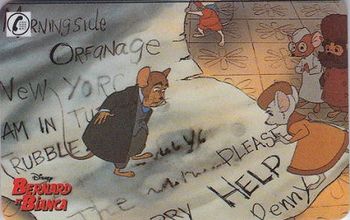 MORNINGSIDE
ORFANAGE
NEW YORC
AM IN TU
RUBBLE
The
PLEASE
HELP
RRY
Penny
Disney
BERNARD
and
BIANCA